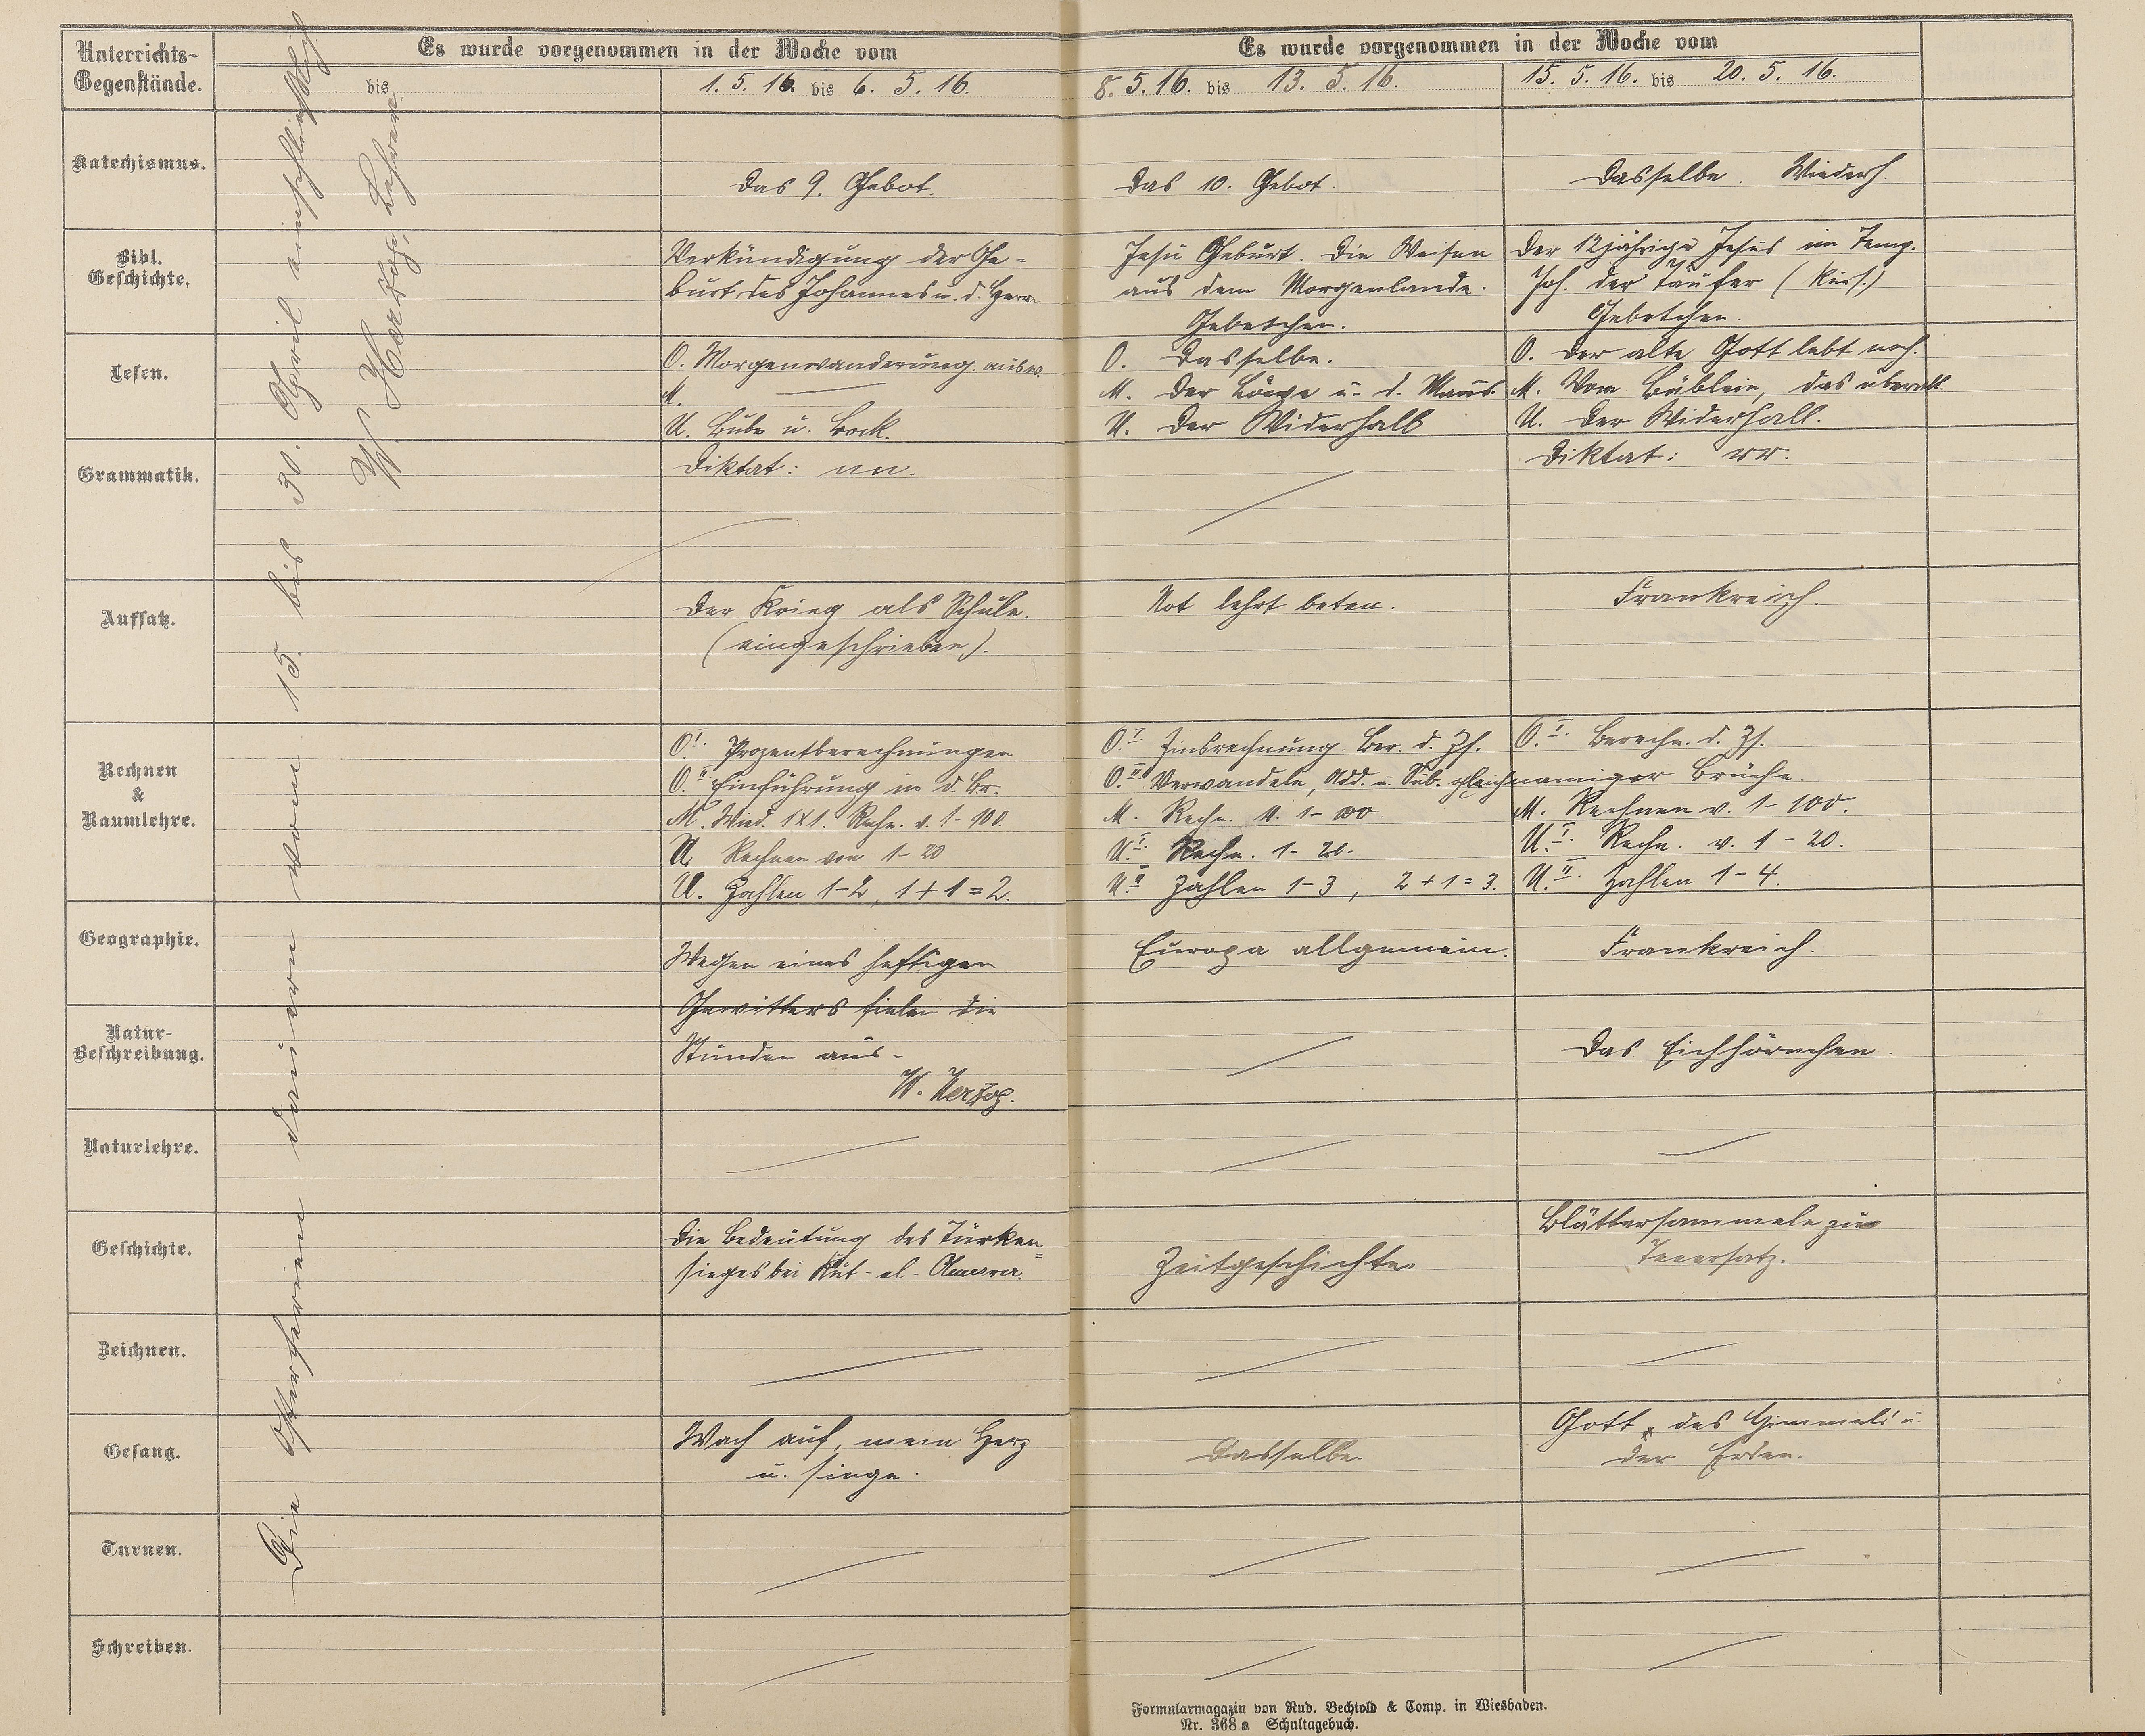 Unterrichts-
Gegenstände.
Es wurde vorgenommen in der Woche vom
Es wurde vorgenommen in der Woche vom
bis
1. 5. 16. bis 6. 5. 16.
8. 5. 16. bis 13. 5. 16.
15. 5. 16. bis 20. 5. 16.
Die Osterferien dauern vom 15. bis 30. April einschließlich
W. Herzog, Lehrer.
Katechismus.
Das 9. Gebot.
Das 10. Gebot.
Dasselbe. Wiederh.
Bibl.
Geschichte.
Verkündigung der Ge-
burt des Johannes u. d. Herrn
Jesu Geburt. Die Weisen
aus dem Morgenlande.
Gebetchen.
Der 12jährige Jesus im Temp.
Joh. der Täufer (kurs.)
Gebetchen.
Lesen.
O. Morgenwanderung. ausw.
M.
U. Bube u. Bock.
O. Dasselbe.
M. Der Löwe u. d. Maus.
U. Der Widerhall
O. Der alte Gott lebt noch.
M. Vom Büblein, das überall
U. Der Widerhall.
Grammatik.
Diktat: nn.
Diktat: rr.
Aufsatz.
Der Krieg als Schule.
(eingeschrieben).
Not lehrt beten.
Frankreich.
Rechnen
&
Raumlehre.
O.I. Prozentberechnungen
O.II. Einführung in d. Br.
M. Wied. 1x1. Rechn. v. 1-100
U. Rechnen von 1-20
U. Zahlen 1-2, 1+1=2.
O.I. Zinsrechnung. Ber. d. Zs.
O.II. Verwandeln, Add. u. Sub. gleichnamiger Brüche.
M. Rechn. v. 1-100.
U.I. Rechn. 1-20.
U.II Zahlen 1-3, 2+1=3.
O.I. Berechn. d. Zs.
M. Rechnen v. 1-100.
U.I. Rechn. v. 1-20.
U.II. Zahlen 1-4.
Geographie.
Wegen eines heftigen
Gewitters fielen die
Stunden aus.
W. Herzog.
Europa allgemein.
Frankreich.
Natur-
Beschreibung.
Das Eichhörnchen.
Naturlehre.
Geschichte.
Die Bedeutung des Türken-
sieges bei Kut-el-Amara.
Zeitgeschichte.
Blättersammeln zu
Teeersatz.
Zeichnen.
Gesang.
Wach auf, mein Herz
u. singe.
Dasselbe.
Gott, des Himmels u.
der Erden.
Turnen.
Schreiben.
Formularmagazin von Rud. Bechtold & Comp. in Wiesbaden.
Nr. 368 a Schultagebuch.